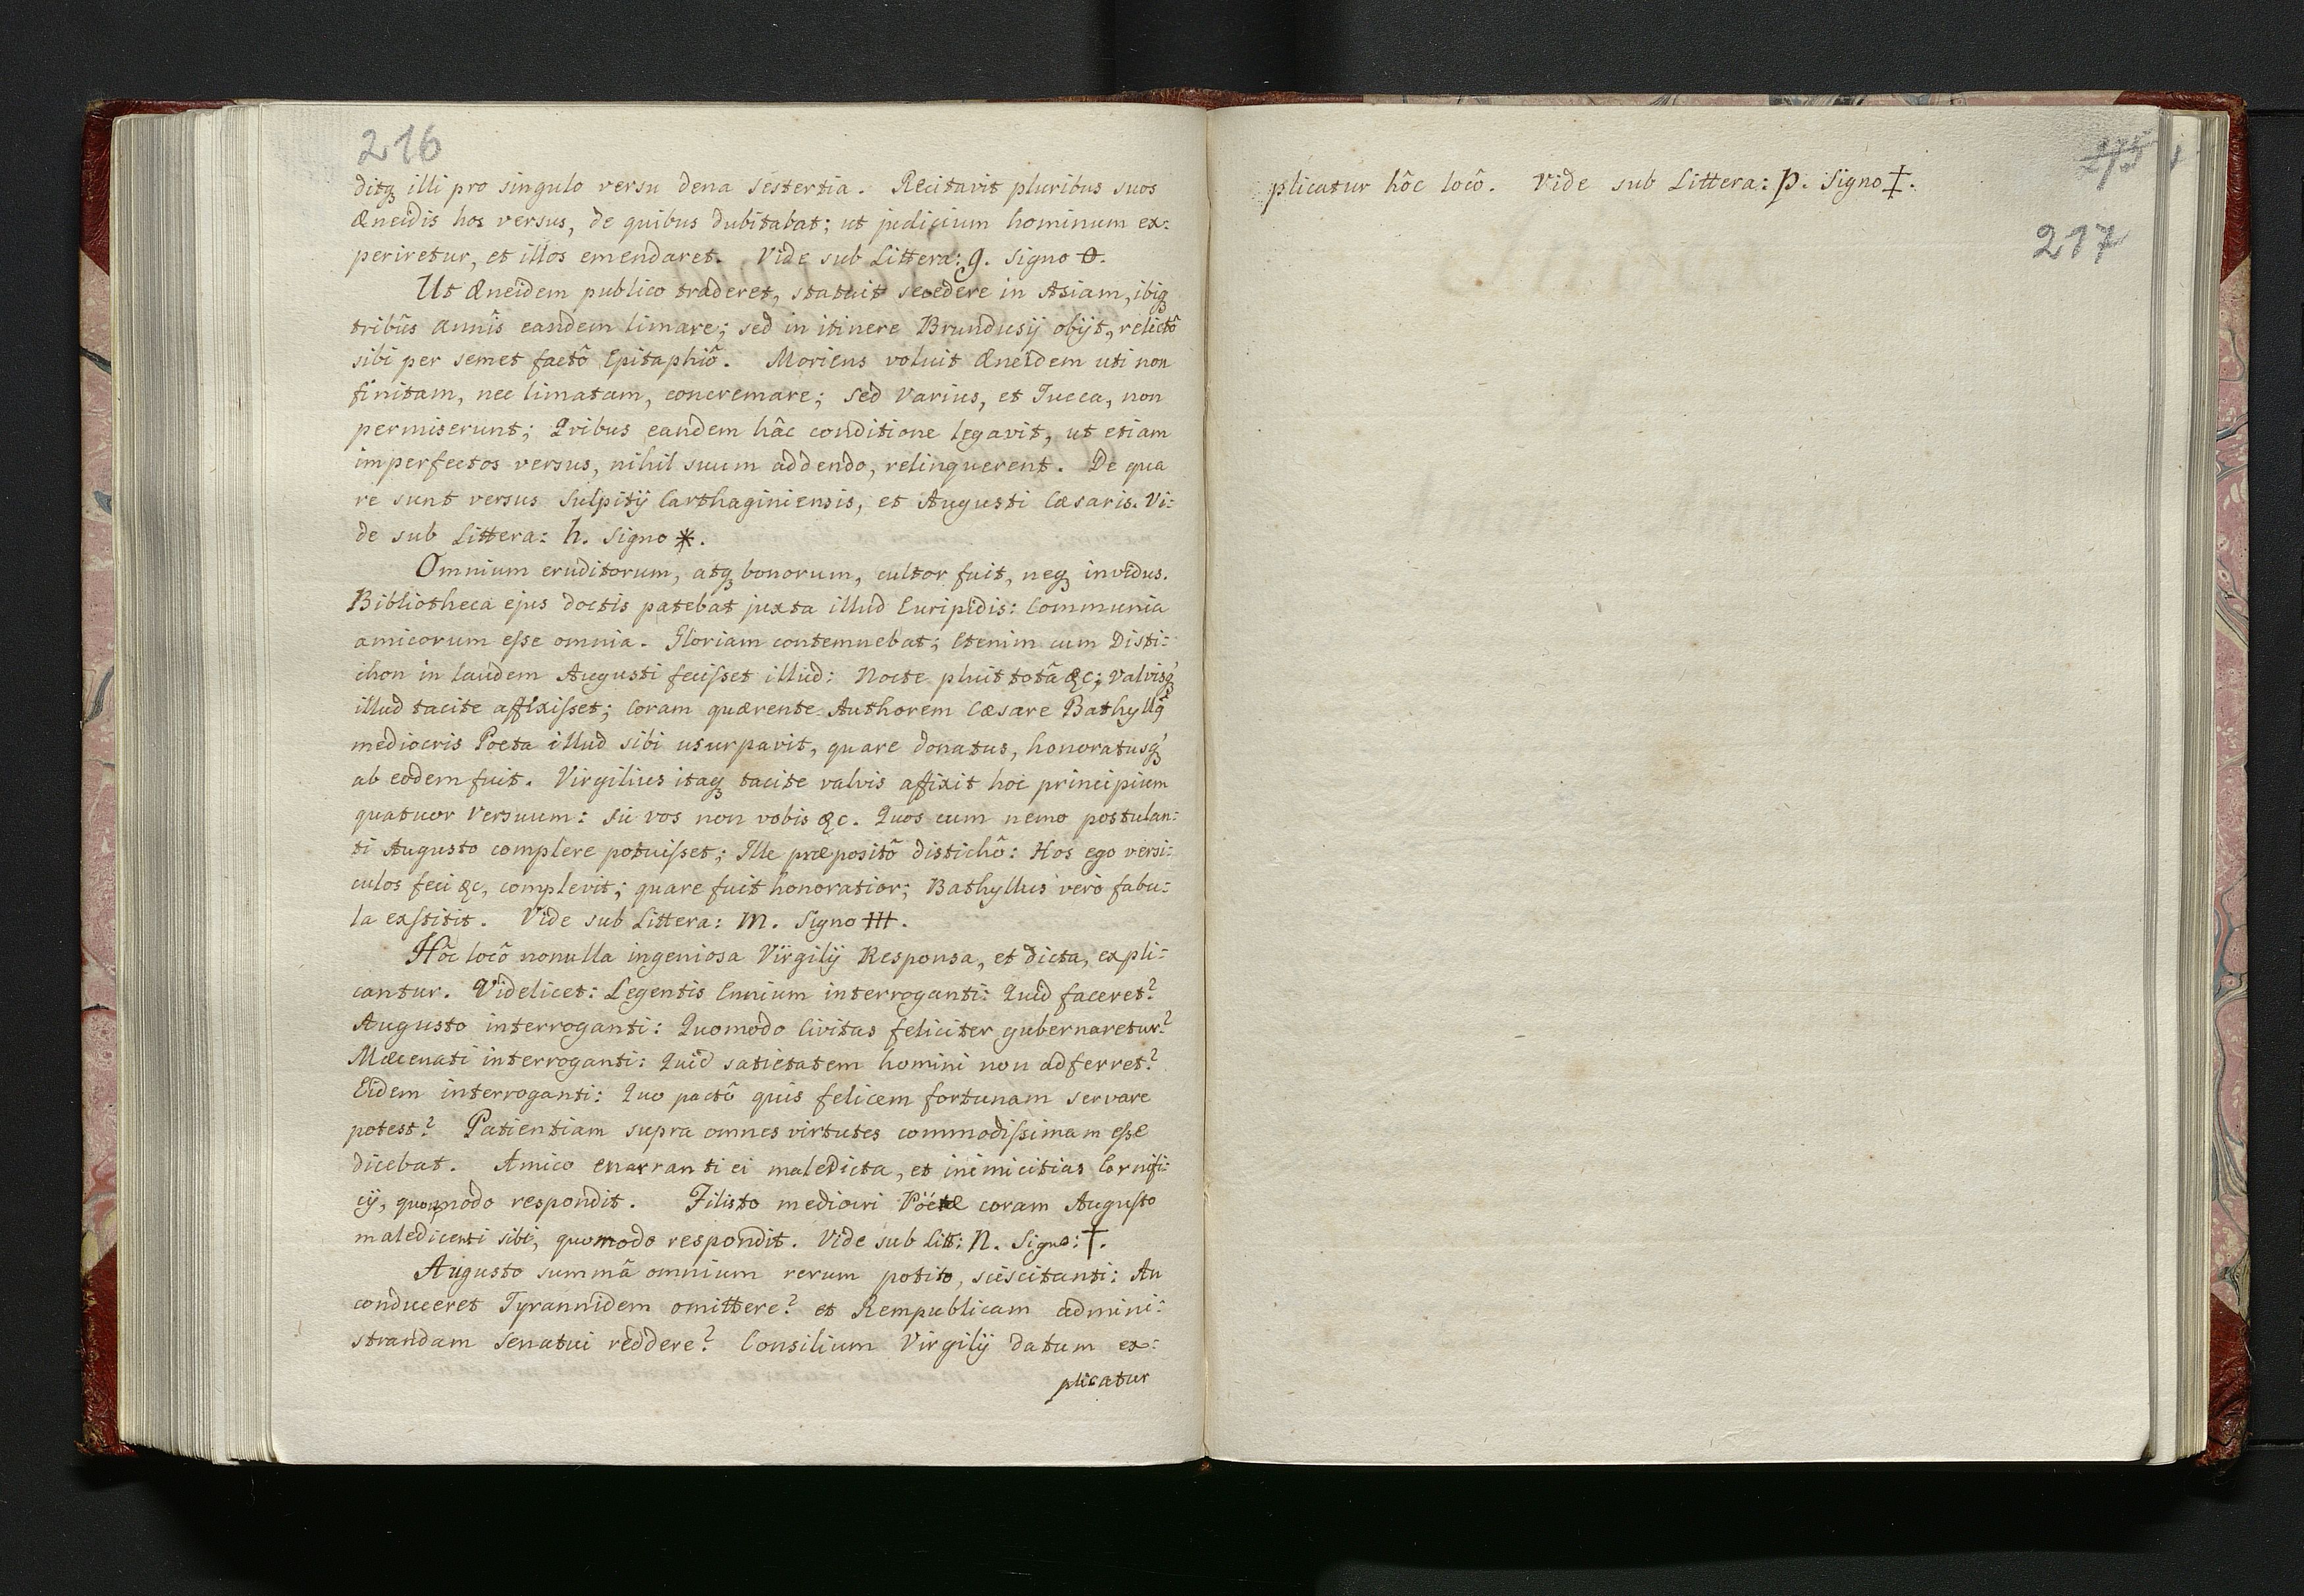 216
ditq; illi pro singulo versu dena sestertia. Recitavit pluribus suos
Æneidis hos versus, de quibus dubitabat; ut judicium hominum ex:
periretur, et illos emendaret. Vide sub Littera: g. Signo ꝋ.
Ut Æneidem publico traderet, statuit secedere in Asiam, ibiq;
tribûs annîs eandem limare; sed in itinere Brundusij obijt, relictô
sibi per semet factô Epitaphiô. Moriens voluit Æneidem uti non
finitam, nec limatam, concremare; sed Varius, et Tucca, non
permiserunt; Qvibus eandem hâc conditione legavit, ut etiam
imperfectos versus, nihil suum addendo, relinquerent. De qua
re sunt versus Sulpitij Carthaginiensis, et Augusti Cæsaris. Vi:
de sub Littera: h. Signo ⚹.
Omnium eruditorum, atq; bonorum, cultor fuit, neq; invidus.
Bibliotheca ejus doctis patebat juxta illud Euripidis: Communia
amicorum eſse omnia. Gloriam contemnebat; Etenim cum Disti:
chon in laudem Augusti feciſset illud: Nocte pluit totâ &c; Valvisq;
illud tacite affixiſset; Coram quærente Authorem Cæsare Bathyllq̃
mediocris Poeta illud sibi usurpavit, quare donatus, honoratusq;
ab eodem fuit. Virgilius itaq; tacite valvis affixit hoc principium
quatuor Versuum: Sic vos non vobis &c. Quos cum nemo postulan:
ti Augusto complere potuiſset; Ille præpositô distichô: Hos ego versi:
culos feci &c, complevit; quare fuit honoratior; Bathyllus verò fabu:
la exſtitit. Vide sub Littera: m. Signo ƗƗƗ.
Hôc locô nonulla ingeniosa Virgilij Responsa, et dicta, expli:
cantur. Videlicet: Legentis Ennium interroganti: Quid faceret?
Augusto interroganti: Quomodo Civitas feliciter gubernaretur?
Mæcenati interroganti: Quid satietatem homini non adferret?
Eidem interroganti: Quo pactô quis felicem fortunam servare
potest? Patientiam supra omnes virtutes commodiſsimam eſse
dicebat. Amico enarranti ei maledicta, et inimicitias Cornifi:
cij, quomodo respondit. Filisto mediocri Poëtæ coram Auguſto
maledicenti sibi, quomodo respondit. Vide sub Litt: n. Signo: †.
Augusto summâ omnium rerum potito, sciscitanti: An
conduceret Tyrannidem omittere? et Rempublicam admini:
strandam Senatui reddere? Consilium Virgilij datum ex:
plicatur
plicatur hôc locô. Vide sub Littera: p. Signo ‡.
217